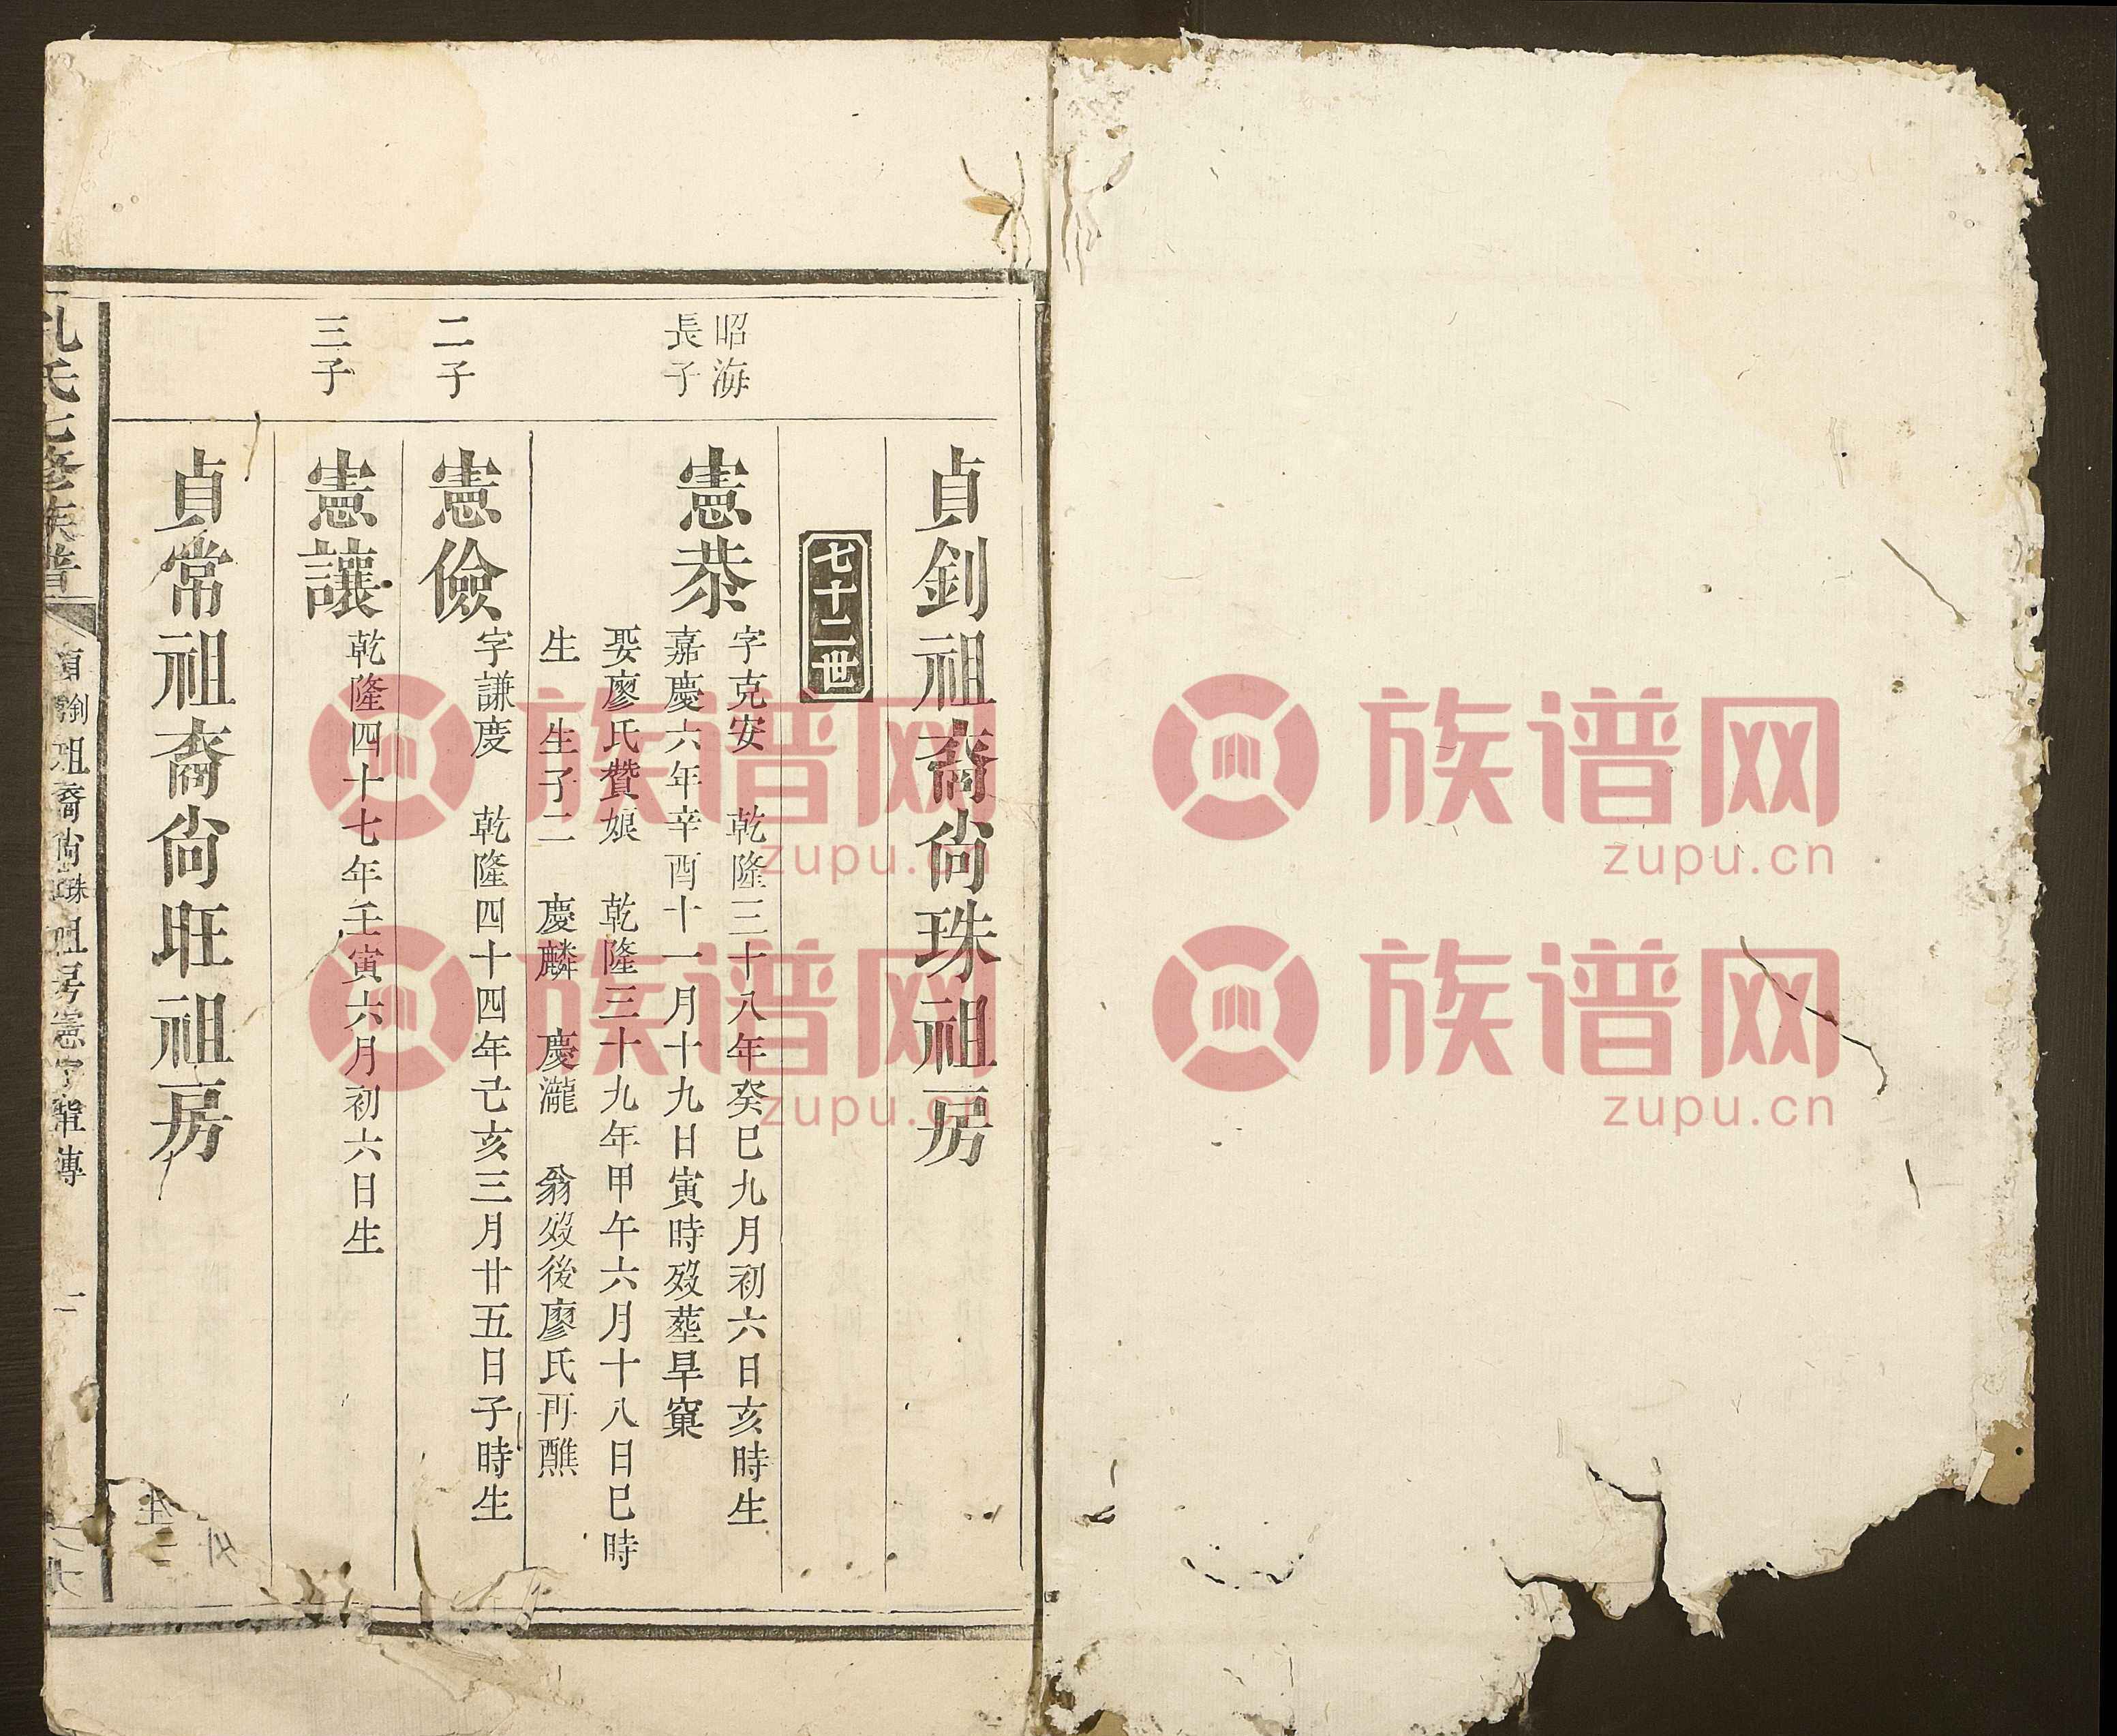 貞釗祖裔尙珠祖房
七十二世
昭海
長子
憲恭
字克安 乾隆三十八年癸巳九月初六日亥時生
嘉慶六年辛酉十一月十九日寅時歿塟旱窠
娶廖氏贊娘 乾隆三十九年甲午六月十八日巳時
生 生子二 慶麟 慶瀧 翁歿後廖氏再醮
二子
憲儉
字謙慶 乾隆四十四年亡亥三月廿五日子時生
三子
憲讓
乾隆四十七年壬寅六月初六日生
貞常祖裔尙旺祖房
孔氏七修族譜
祖裔尙珠祖房憲字輩傳
一
族谱网
zupu.cn
族谱网
zupu.cn
族谱网
zupu.cn
族谱网
zupu.cn